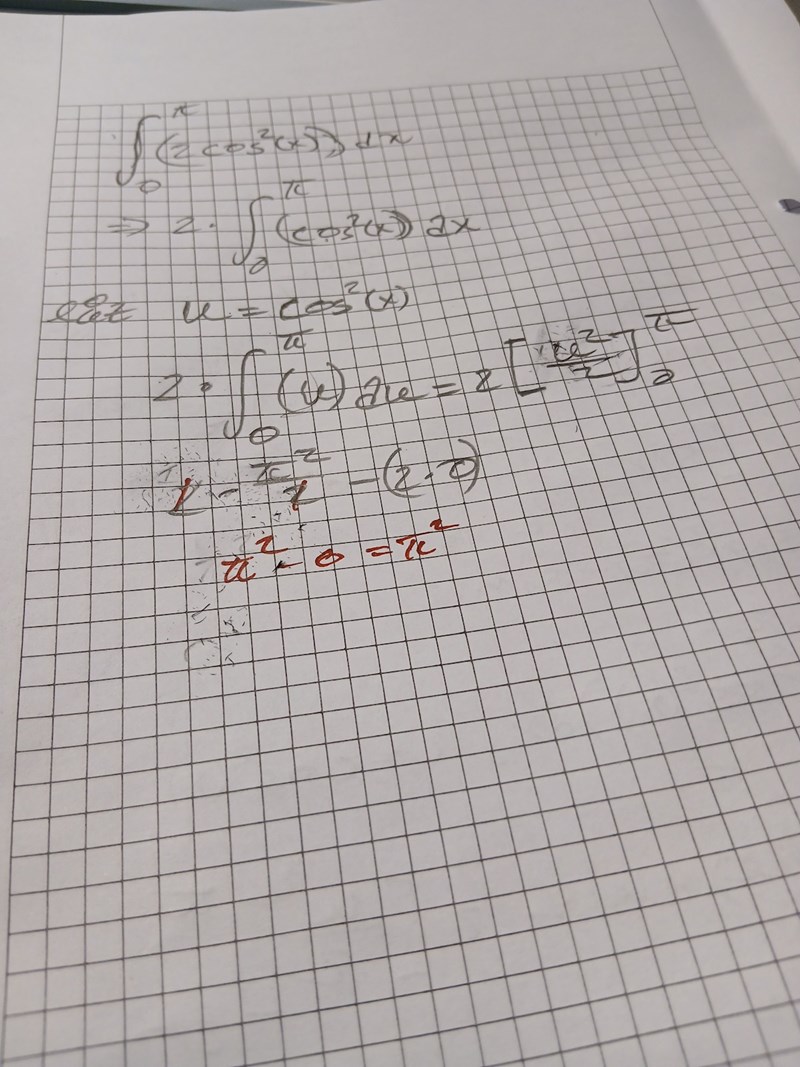 ∫₀^π (2cos²(x)) dx
⇒ 2 · ∫₀^π (cos²(x)) dx
let u = cos²(x)
2 · ∫₀^π (u) du = 2 [u²/2]₀^π
2 - π²/2 - (2 · 0)
π² - 0 = π²